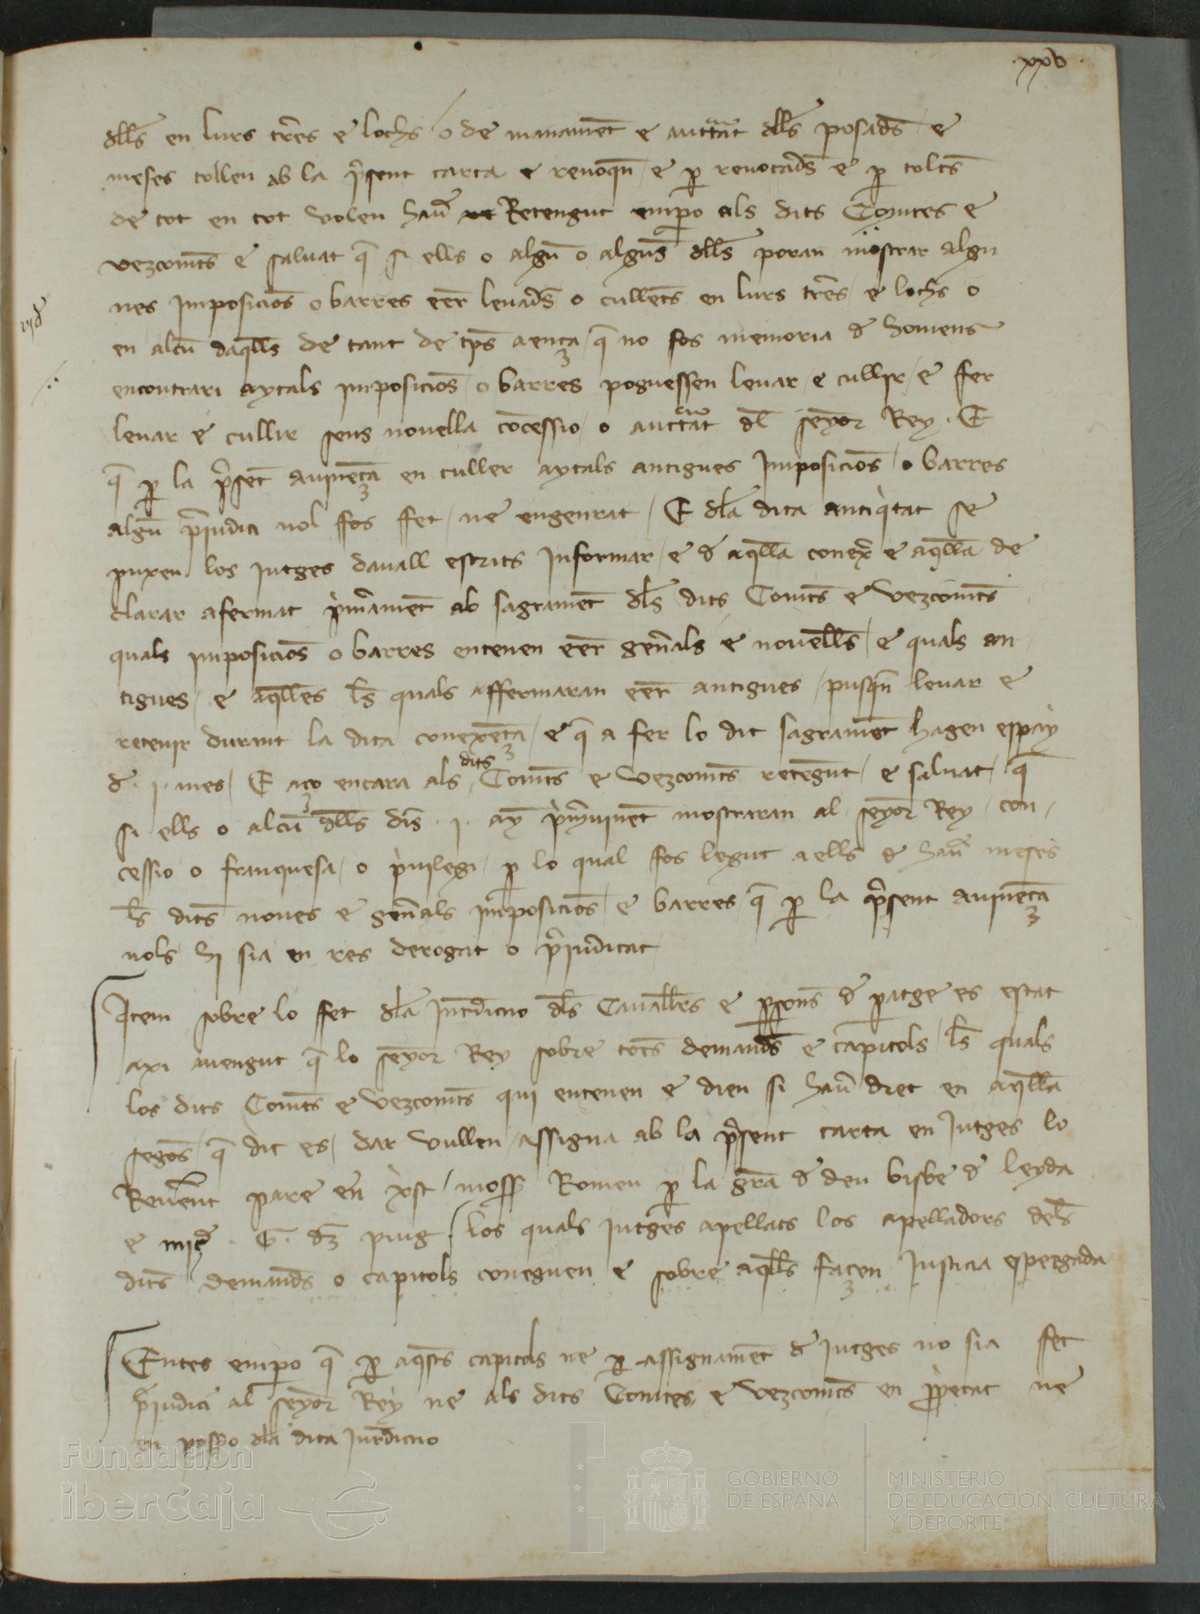 .xxv.
dlls en lurs tres e lochs o de manament e auctat dlls posads e
meses tollen ab la psent carta e revoqn e p revocads e p tolts
de tot en tot volen hav Retengut empo als dits Comtes e
vezcomts e salvat q si ells o algu o algus dlls poran mostrar algu
nes imposicios o barres eer levads o cullets en lurs tres e lochs o
en alcu daqlls de tant de tps aença q no fos memoria d homens
encontrari aytals imposicios o barres poguessen levar e cullir e fer
levar e cullir sens novella cocessio o auctat dl seyor Rey. E
q p la pset avineça en culler aytals antigues Imposicios o barres
algu piudici nol ffos ffet ne engenrat E dla dita antiqtat se
puxen los jutges davall escrits informar e d aqlla conex e aqlla de
clarar afermat pmament ab sagrament dls dits Comts e vezcomts
quals imposicios o barres entenen eer genals e novells e quals an
tigues e aqlles ls quals affermaran eer antigues pusqn levar e
retenir durant la dita conexeça e q a fer lo dit sagrament hagen espay
d .i. mes E aço encara als dits Comts e vezcomts retegut e salvat q
si ells o alcu dlls dis .i. ay pmvinent mostraran al seyor Rey con
cessio o franquesa o pvilegi p lo qual fos legut a ells d hav meses
ls dits noves e genals imposicios e barres q p la psent avineça
nols hi sia en res derogat o piudicat
Item sobre lo ffet dla Jurdiccio dls Cavallers e psons d patge es estat
axi avengut q lo seyor Rey sobre tots demands e capitols ls quals
los dits Comts e vezcomts qui entenen e dien si hav dret en aqlla
segos q dit es dar vullen assigna ab la psent carta en Jutges lo
Reverent pare en xst mossr Romeu p la gra d deu bisbe d leyda
e miç . G. dz puig los quals jutges apellats los apelladors dels
dits demands o capitols coneguen e sobre aqlls façen Justicia espegada
Entes empo q p aqsts capitols ne p assignament d Jutges no sia fet
piudici al seyor Rey ne als dits Comtes e vezcomts en ppetat ne
en possio dla dita Jurdiccio
Fundación
iberCaja
GOBIERNO
DE ESPAÑA
MINISTERIO
DE EDUCACIÓN, CULTURA
Y DEPORTE